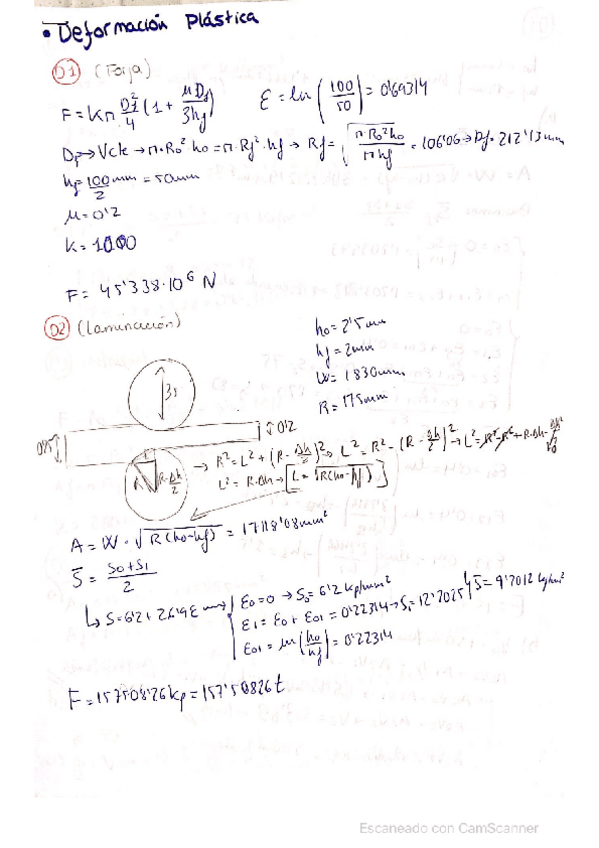 • Deformación Plástica
D1 (Forja)
F = Kπ Df²/4 (1 + μDf/3hf)   ε = ln (100/50) = 0'69314
Df → Vck → π·R₀²·h₀ = π·Rf²·hf → Rf = √(π·R₀²h₀/πhf) = 106'06 → Df = 212'13 mm
hf = 100mm/2 = 50mm
μ = 0'2
K = 1000
F = 45'338·10⁶ N
D2 (Laminación)
h₀ = 2'5 mm
hf = 2mm
W = 1830mm
R = 175mm
35
0'2
→ R² = L² + (R - Δh/2)² → L² = R² - (R - Δh/2)² → L² = R² - R² + R·Δh - Δh²/4
R   R-Δh/2   L² = R·Δh → [L = √R(h₀-hf)]
A = W · √R(h₀-hf) = 17118'08mm²
S̄ = S₀+S₁/2
↳ S = 6'2 + 26'9 ε → ε₀ = 0 → S₀ = 6'2 kp/mm²
ε₁ = ε₀ + ε₀₁ = 0'22314 → S₁ = 12'2025   S̄ = 9'2012 kg/mm²
ε₀₁ = ln (h₀/hf) = 0'22314
F = 157508'26 kp = 157'50826 t
Escaneado con CamScanner